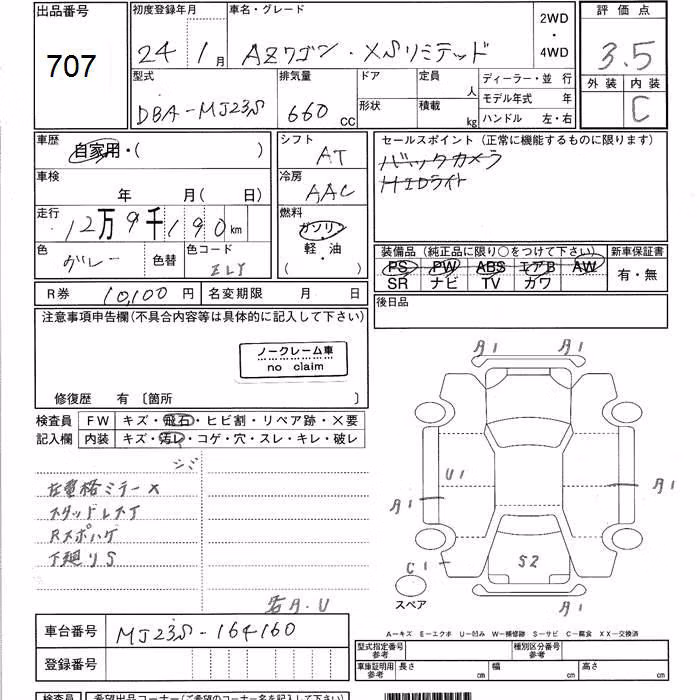 出品番号
707
初度登録年月
24 1月
車名・グレード
AZワゴン・XSリミテッド
2WD
・
4WD
評価点
3.5
外装 内装
C
型式
DBA-MJ23S
排気量
660 cc
ドア
形状
定員 人
積載 kg
ディーラー・並 行
モデル年式 年
ハンドル 左・右
車歴
自家用・( )
車検
年 月( 日)
走行
12万9千190km
色
グレー
色替
色コード
ZLY
シフト
AT
冷房
AAC
燃料
ガソリン
軽・油
( )
セールスポイント(正常に機能するものに限ります)
バックカメラ
HIDライト
装備品(純正品に限り○をつけて下さい)
PS PW ABS エアB AW
SR ナビ TV カワ
新車保証書
有・無
R券 10,100円
名変期限 月 日
後日品
注意事項申告欄(不具合内容等は具体的に記入して下さい)
ノークレーム車
no claim
修復歴 有 〔箇所 〕
検査員
記入欄
FW キズ・飛石・ヒビ割・リペア跡・×要
内装 キズ・汚レ・コゲ・穴・スレ・キレ・破レ
シミ
スタッドレス
下廻りS
A1 A1
U1
A1
A1
C1
S2
A1
スペア
A-キズ E-エクボ U-凹み W-補修跡 S-サビ C-腐食 XX-交換済
車台番号
MJ23S-164160
登録番号
型式指定番号
参考
種別区分番号
参考
車庫証明用
参考
長さ cm
幅 cm
高さ cm
検査員
希望出品コーナー(ご希望のコーナー名を記入下さい)